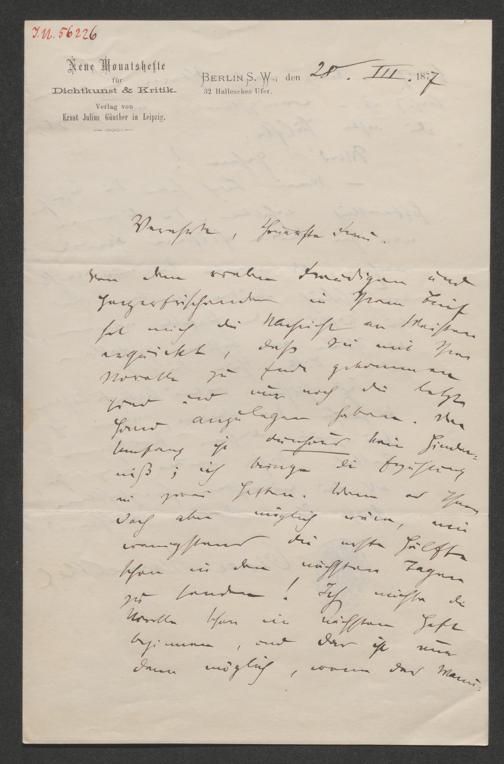 I.N. 56226
Neue Monatshefte
für
Dichtkunst & Kritik.
Verlag von
Ernst Julius Günther in Leipzig.
BERLIN S. W., den 28. III. 1877
32 Hallesches Ufer.
Verehrte, theuerste Frau.
Von dem vielen Freudigen und
Herzerfrischenden in Ihrem Brief
hat mich die Nachricht am Meisten
erquickt, daß Sie mit Ihrer
Novelle zu Ende gekommen
sind und nur noch die letzte
Hand anzulegen haben. Der
Umfang ist durchaus kein Hinder-
niß; ich bringe die Erzählung
in zwei Heften. Wenn es Ihnen
doch aber möglich wäre, mir
wenigstens die erste Hälfte
schon in den nächsten Tagen
zu senden! Ich möchte die
Novelle schon im nächsten Heft
beginnen, und das ist nur
dann möglich, wenn das Manu-